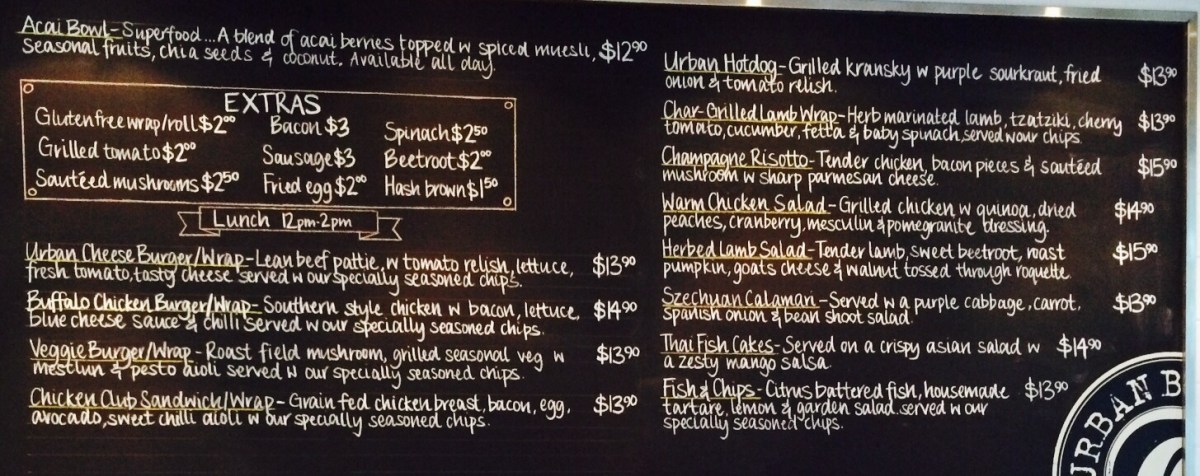 Acai Bowl-Superfood...A blend of acai berries topped w spiced muesli, $12⁹⁰
Seasonal fruits, chia seeds & coconut. Available all day.
EXTRAS
Glutenfree wrap/roll $2⁰⁰
Bacon $3
Spinach $2⁵⁰
Grilled tomato $2⁰⁰
Sausage $3
Beetroot $2⁰⁰
Sautéed mushrooms $2⁵⁰
Fried egg $2⁰⁰
Hash brown $1⁵⁰
Lunch 12pm-2pm
Urban Cheese Burger/Wrap-Lean beef pattie, w tomato relish, lettuce, $13⁹⁰
fresh tomato, tasty cheese served w our specially seasoned chips.
Buffalo Chicken Burger/Wrap- Southern style chicken w bacon, lettuce, $14⁹⁰
blue cheese sauce & chilli served w our specially seasoned chips.
Veggie Burger/Wrap-Roast field mushroom, grilled seasonal veg w $13⁹⁰
mesclun & pesto aioli served w our specially seasoned chips.
Chicken Club Sandwich/Wrap- Grain fed chicken breast, bacon, egg, $13⁹⁰
avocado, sweet chilli aioli w our specially seasoned chips.
Urban Hotdog-Grilled kransky w purple sourkraut, fried $13⁹⁰
onion & tomato relish.
Char-Grilled Lamb Wrap-Herb marinated lamb, tzatziki, cherry $13⁹⁰
tomato, cucumber, fetta & baby spinach, served w our chips.
Champagne Risotto-Tender chicken, bacon pieces & sautéed $15⁹⁰
mushroom w sharp parmesan cheese.
Warm Chicken Salad-Grilled chicken w quinoa, dried $14.⁹⁰
peaches, cranberry, mesculin & pomegranite dressing.
Herbed Lamb Salad-Tender lamb, sweet beetroot, roast $15⁹⁰
pumpkin, goats cheese & walnut tossed through roquette.
Szechuan Calamari-Served w a purple cabbage, carrot, $13⁹⁰
spanish onion & bean shoot salad.
Thai Fish Cakes-Served on a crispy asian salad w $14⁹⁰
a zesty mango salsa.
Fish & Chips-Citrus battered fish, housemade $13⁹⁰
tartare, lemon & garden salad served w our
specially seasoned chips.
URBAN B